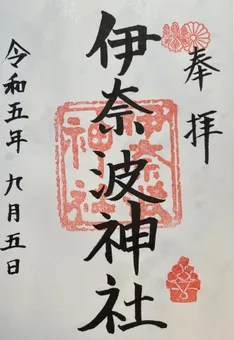 奉拝
伊奈波神社
令和五年九月五日
伊奈波
神社